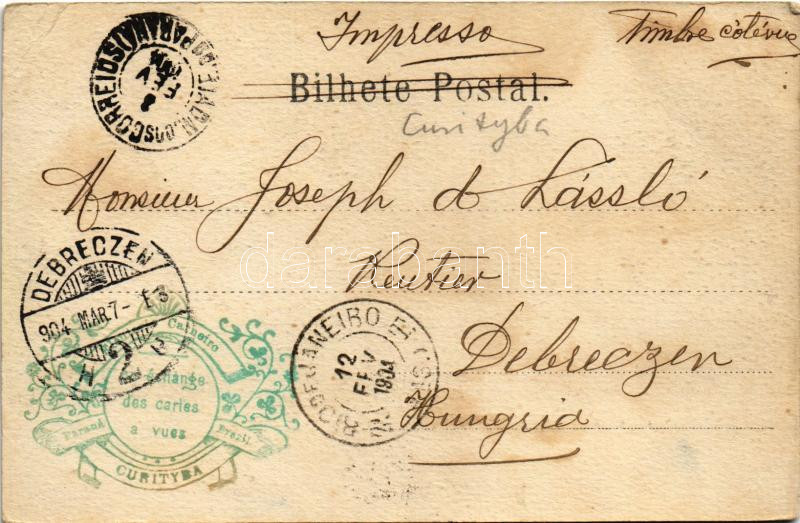 Impresso
Timbre côté vue
Bilhete Postal.
Curityba
CORREIOS
8
FEV
Monsieur Joseph de László
Rentier
Debreczen
Hungria
DEBRECZEN
904 MAR 7
RIO DE JANEIRO
12
FEV
1904
Carneiro
échange
des cartes
a vues
Paraná
Brezil
CURITYBA
darabanth